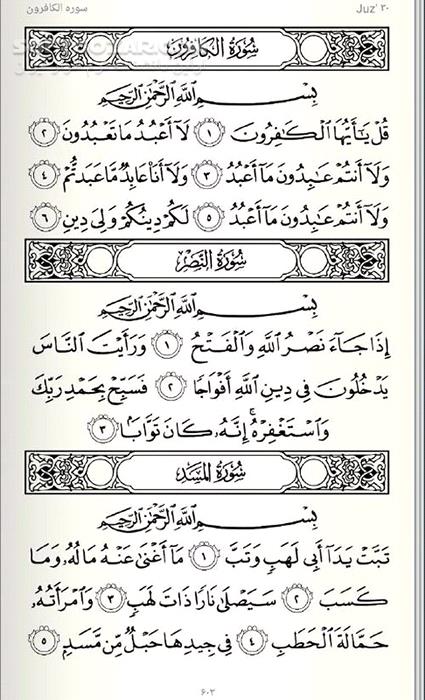 سوره الكافرون
Juz' ٣٠
سُورَةُ الكَافِرُونَ
بِسْمِ اللَّهِ الرَّحْمَٰنِ الرَّحِيمِ
قُلْ يَا أَيُّهَا الْكَافِرُونَ ١ لَا أَعْبُدُ مَا تَعْبُدُونَ ٢
وَلَا أَنتُمْ عَابِدُونَ مَا أَعْبُدُ ٣ وَلَا أَنَا عَابِدٌ مَّا عَبَدتُّمْ ٤
وَلَا أَنتُمْ عَابِدُونَ مَا أَعْبُدُ ٥ لَكُمْ دِينُكُمْ وَلِيَ دِينِ ٦
سُورَةُ النَّصْرِ
بِسْمِ اللَّهِ الرَّحْمَٰنِ الرَّحِيمِ
إِذَا جَاءَ نَصْرُ اللَّهِ وَالْفَتْحُ ١ وَرَأَيْتَ النَّاسَ
يَدْخُلُونَ فِي دِينِ اللَّهِ أَفْوَاجًا ٢ فَسَبِّحْ بِحَمْدِ رَبِّكَ
وَاسْتَغْفِرْهُ ۚ إِنَّهُ كَانَ تَوَّابًا ٣
سُورَةُ المَسَدِ
بِسْمِ اللَّهِ الرَّحْمَٰنِ الرَّحِيمِ
تَبَّتْ يَدَا أَبِي لَهَبٍ وَتَبَّ ١ مَا أَغْنَىٰ عَنْهُ مَالُهُ وَمَا
كَسَبَ ٢ سَيَصْلَىٰ نَارًا ذَاتَ لَهَبٍ ٣ وَامْرَأَتُهُ
حَمَّالَةَ الْحَطَبِ ٤ فِي جِيدِهَا حَبْلٌ مِّن مَّسَدٍ ٥
٦٠٣